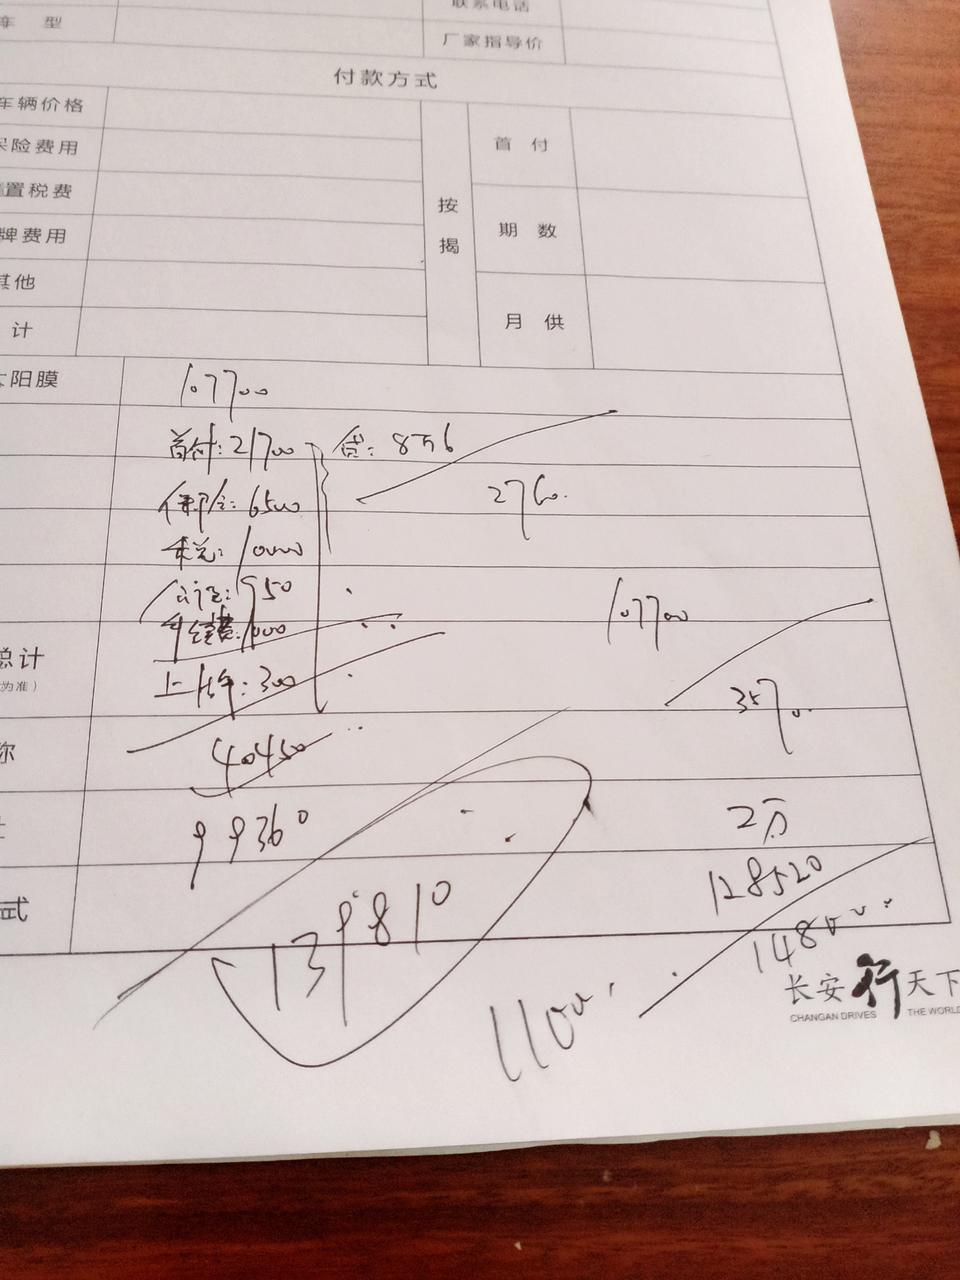 联系电话
车 型
厂家指导价
付款方式
车辆价格
保险费用
首 付
置税费
按揭
牌费用
期 数
其他
计
月 供
太阳膜
107700
首付:21700 贷:8万6
保险:6500 2760.
税:10000
公证:950
手续费:1000 107700
总计
为准)
上牌:300
3570.
称
40450
99360 2万
式
128520
139810
148000
11000.
长安行天下
CHANGAN DRIVES THE WORLD